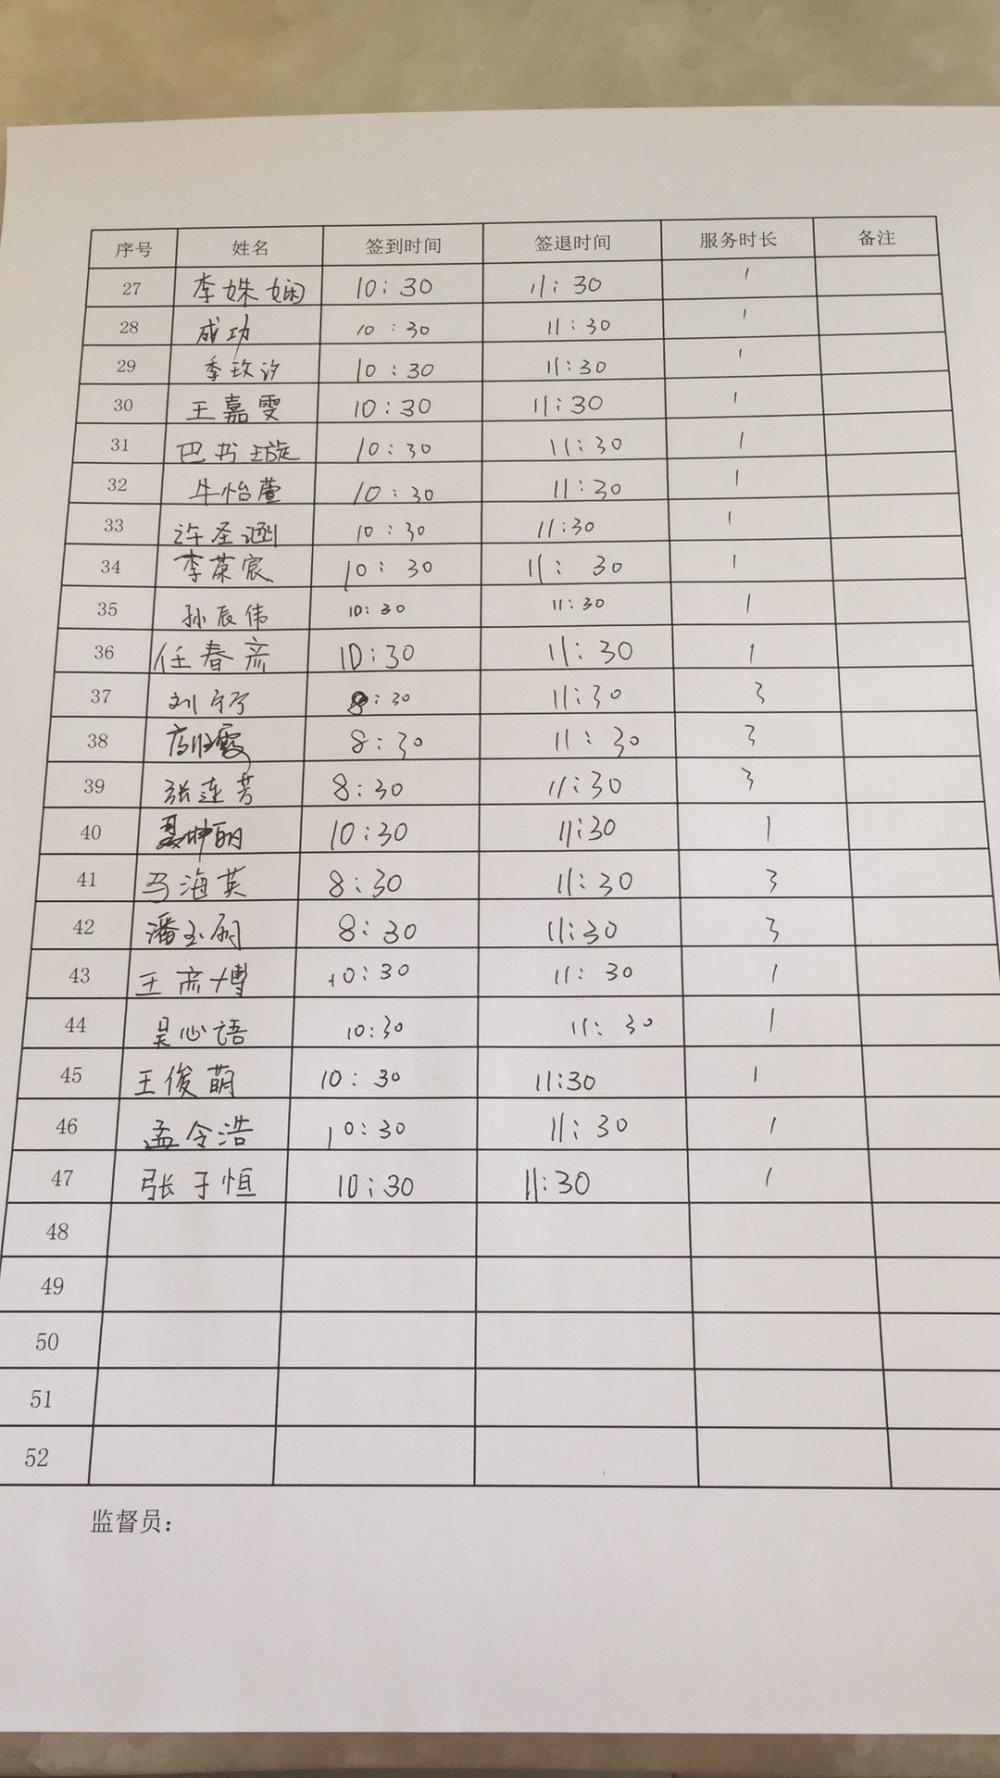 序号 姓名 签到时间 签退时间 服务时长 备注
27 李姝娴 10:30 11:30 1
28 成功 10:30 11:30 1
29 季玫汐 10:30 11:30 1
30 王嘉雯 10:30 11:30 1
31 巴书璇 10:30 11:30 1
32 牛怡萱 10:30 11:30 1
33 许圣涵 10:30 11:30 1
34 李荣宸 10:30 11:30 1
35 孙辰伟 10:30 11:30 1
36 任春彦 10:30 11:30 1
37 刘宁宁 8:30 11:30 3
38 8:30 11:30 3
39 张莲芳 8:30 11:30 3
40 10:30 11:30 1
41 马海英 8:30 11:30 3
42 潘玉 8:30 11:30 3
43 王彦博 10:30 11:30 1
44 吴心语 10:30 11:30 1
45 王俊萌 10:30 11:30 1
46 孟令浩 10:30 11:30 1
47 张子恒 10:30 11:30 1
48
49
50
51
52
监督员：